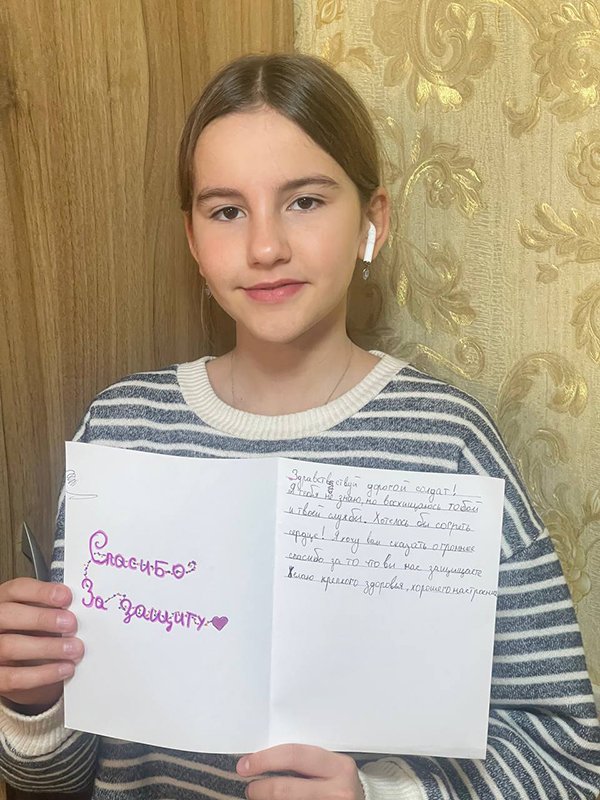 Спасибо
За защиту
Здравствуй дорогой солдат!
Я тебя не знаю, но восхищаюсь тобой
и твоей службы. Хотелось бы согреть
сердце! Я хочу вам сказать огромное
спасибо за то что вы нас защищаете
Желаю крепкого здоровья, хорошего настроения